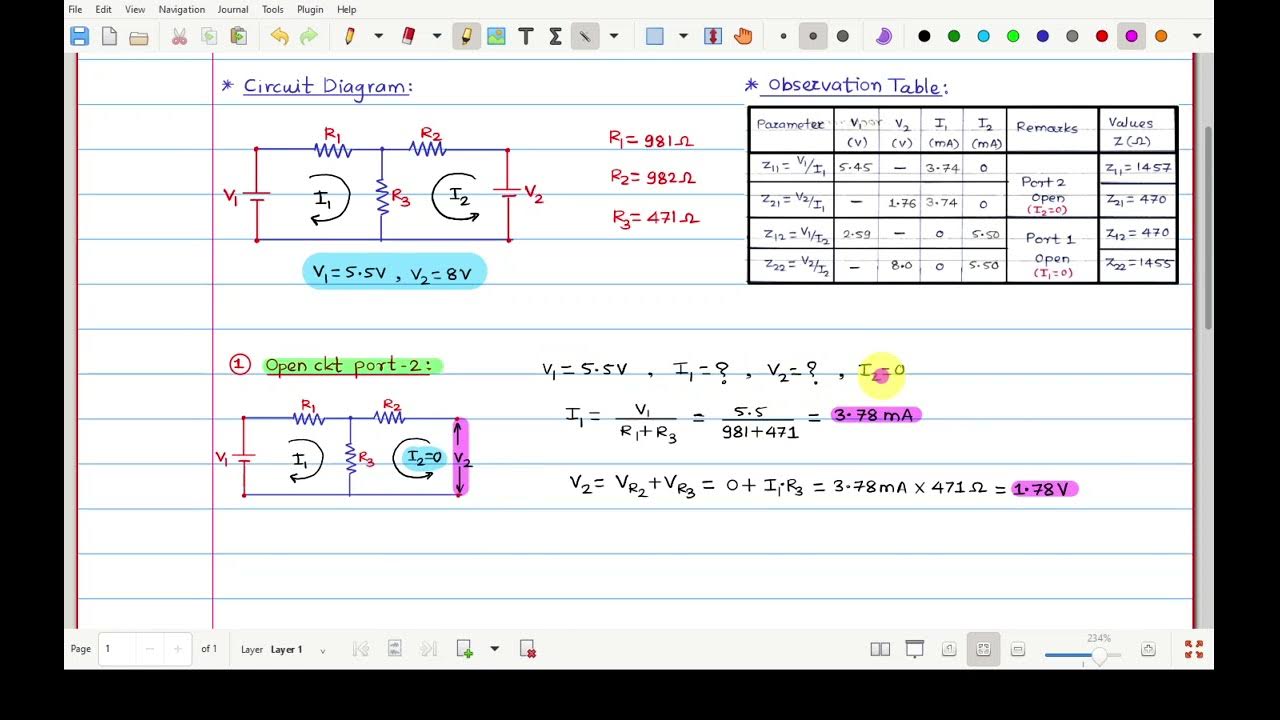 File Edit View Navigation Journal Tools Plugin Help
* Circuit Diagram:
R1 R2
V1 I1 R3 I2 V2
V1 = 5.5V , V2 = 8V
R1 = 981Ω
R2 = 982Ω
R3 = 471Ω
* Observation Table:
Parameter V1 (V) V2 (V) I1 (mA) I2 (mA) Remarks Values Z(Ω)
Z11 = V1/I1 5.45 – 3.74 0 Port 2 Open (I2=0) Z11 = 1457
Z21 = V2/I1 – 1.76 3.74 0 Z21 = 470
Z12 = V1/I2 2.59 – 0 5.50 Port 1 Open (I1=0) Z12 = 470
Z22 = V2/I2 – 8.0 0 5.50 Z22 = 1455
① Open ckt port-2:
R1 R2
V1 I1 R3 I2=0 V2
V1 = 5.5V , I1 = ? , V2 = ? , I2 = 0
I1 = V1/(R1+R3) = 5.5/(981+471) = 3.78 mA
V2 = VR2 + VR3 = 0 + I1·R3 = 3.78mA × 471Ω = 1.78 V
Page 1 of 1 Layer Layer 1 234%